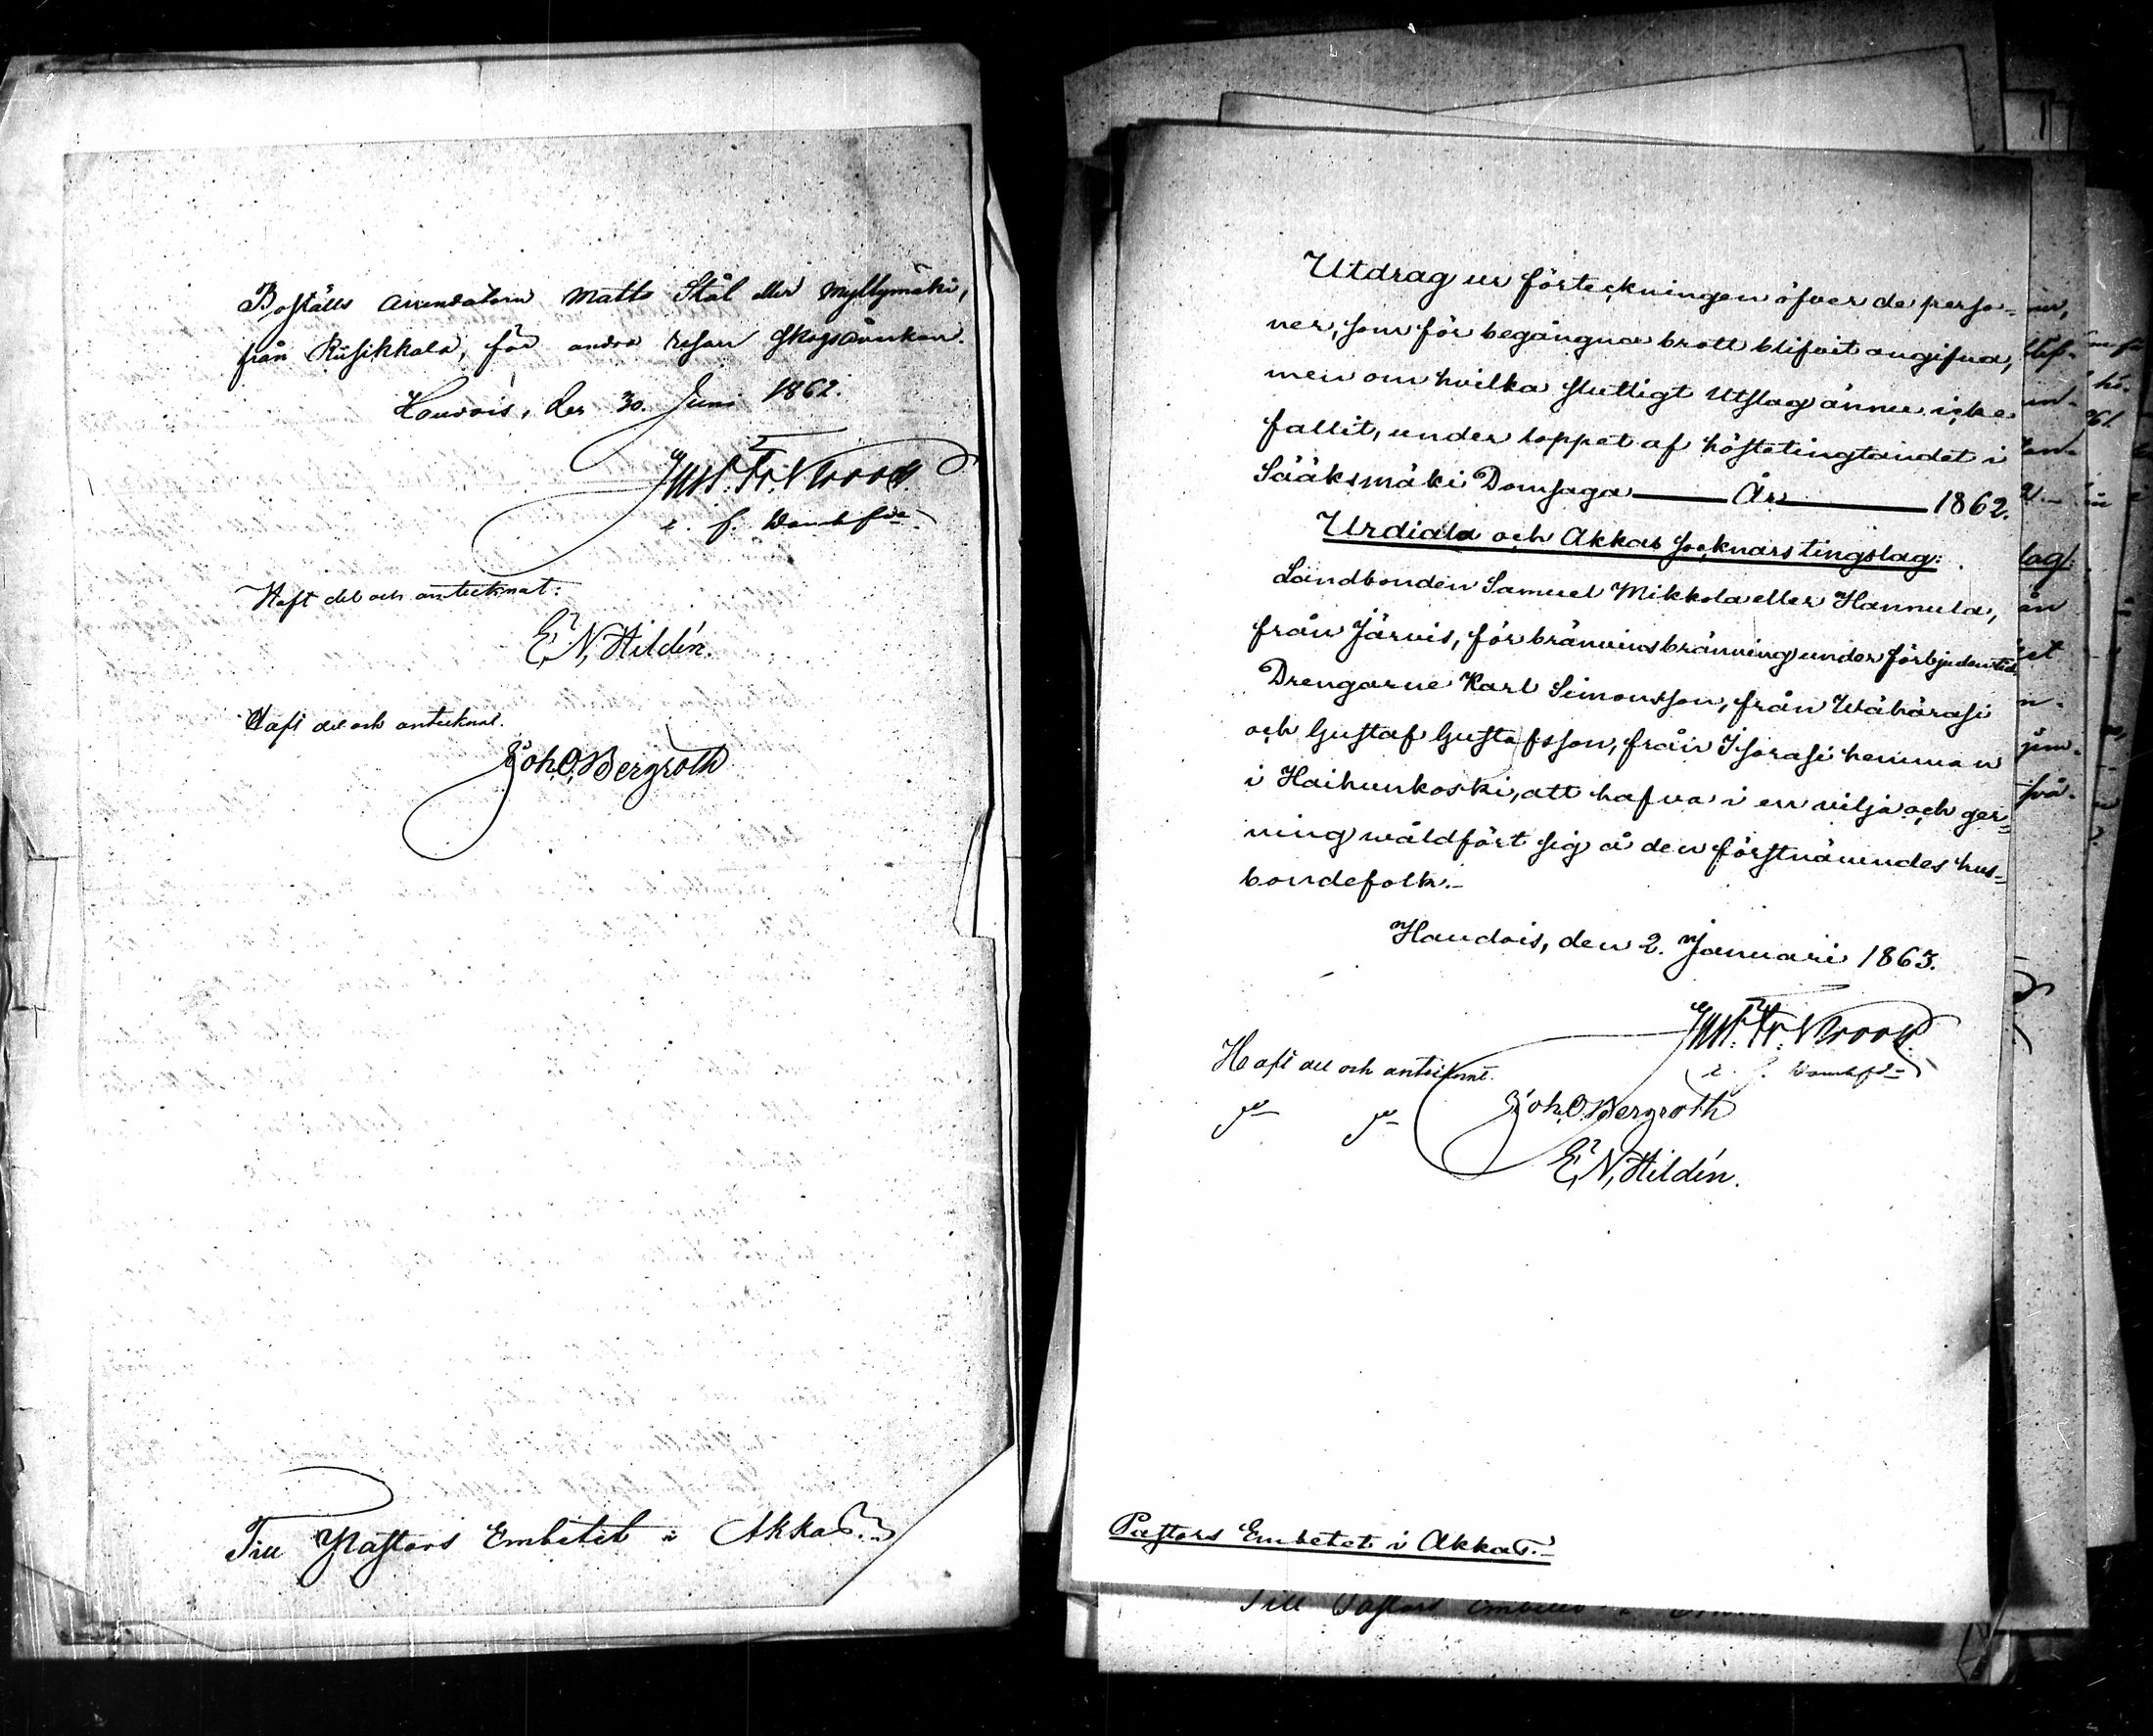 Boställs arrendatorn Matts Stål eller Myllymäki,
från Riisikkala, för andra resan skogsåverkan.
Haudois, den 30. Juni 1862.
Gust. Fr. Krook
e. f. Domhfde
Haft del och antecknat:
E. N. Hildén.
Haft del och antecknat.
Joh. O. Bergroth
Till Pastors Embetet i Akkas.
Utdrag ur förteckningen öfver de perso-
ner, som för begångna brott blifvit angifna,
men om hvilka slutligt Utslag ännu icke
fallit, under loppet af höstetingtandet i
Sääksmäki Domsaga År 1862.
Urdiala och Akkas socknars tingslag:
Landbonden Samuel Mikkola eller Hannula,
från Järvis, för bränvinsbränning under förbjuden tid.
Drengarne Karl Simonsson, från Wähärasi
och Gustaf Gustafsson, från Isorasi hemman
i Haihunkoski, att hafva i en vilja och ger-
ning wåldfört sig å den förstnämndes hus-
bondefolk.
Haudois, den 2. Januari 1863.
Gust. Fr. Krook
e. f. Domhfde
Haft del och antecknat.
Joh. O. Bergroth
E. N. Hildén.
Pastors Embetet i Akkas.
Till Pastors Embetet i